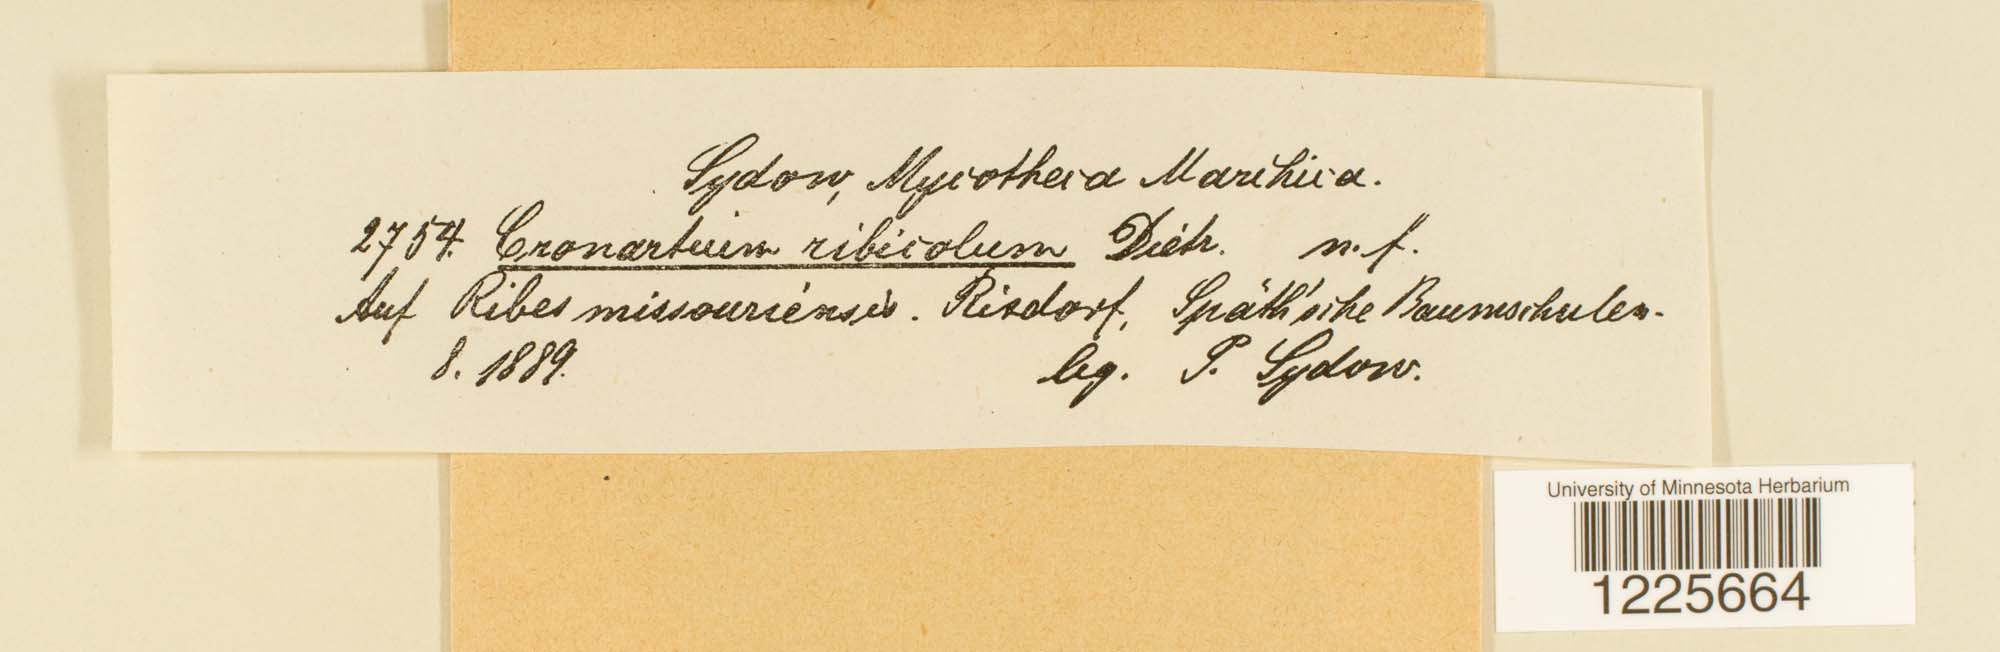 Sydow, Mycotheca Marchica.
2754. Cronartium ribicolum Dietr. n. f.
Auf Ribes missouriensis. Rixdorf, Späth'sche Baumschulen.
8. 1889. leg. P. Sydow.
University of Minnesota Herbarium
1225664